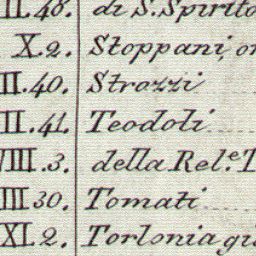 II.48. di S. Spirito
X.2. Stoppani, or
II.40. Strozzi
II.41. Teodoli
VIII.3. della Rel.e T
III 30. Tomati
XI.2. Torlonia già